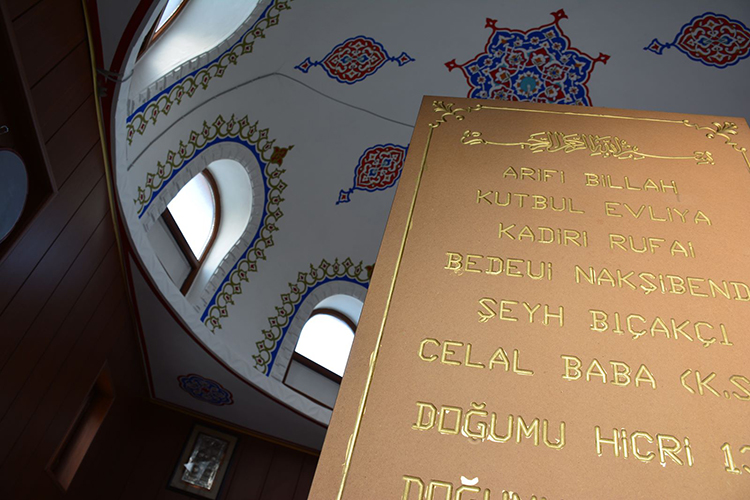 ARIFI BILLAH
KUTBUL EVLIYA
KADIRI RUFAI
BEDEUI NAKŞIBEND
ŞEYH BIÇAKÇI
CELAL BABA (K.S
DOĞUMU HICRI 13